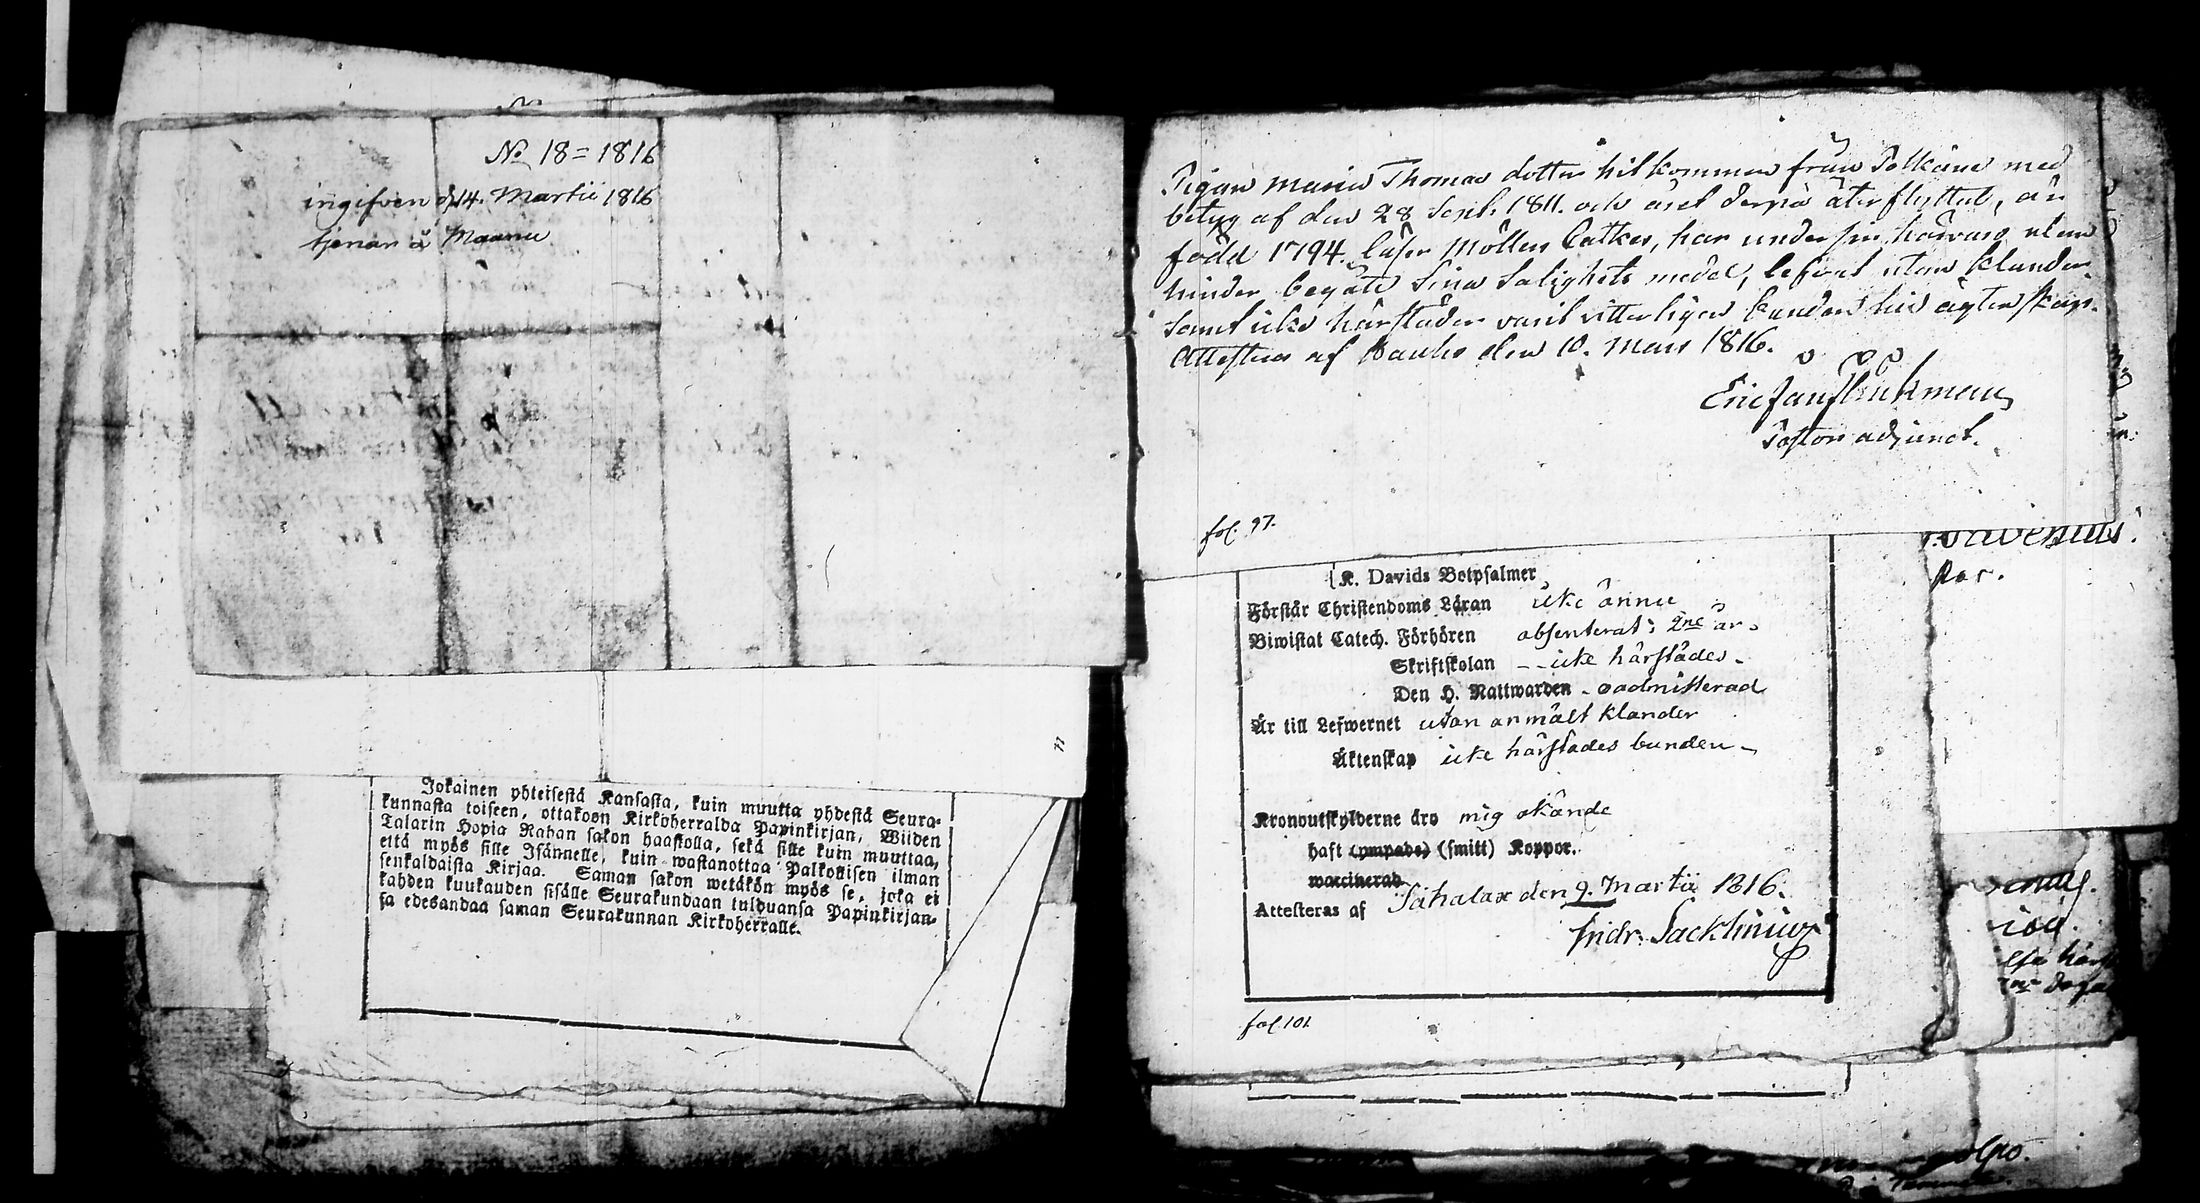 No 18 = 1816
ingifven d. 14. Martii 1816
tjenar å Maanu
Jokainen yhteisestä Kansasta, kuin muutta yhdestä Seura-
kunnasta toiseen, ottakoon Kirkoherralda Papinkirjan, Wiiden
Talarin Hopia Rahan sakon haastolla, sekä sille kuin muuttaa,
että myös sille Isännelle, kuin wastanottaa Palkollisen ilman
senkaldaista Kirjaa. Saman sakon wetäkön myös se, joka ei
kahden kuukauden sisälle Seurakundaan tulduansa Papinkirjan-
sa edesandaa saman Seurakunnan Kirkoherralle.
Pigan Maria Thomas dotter hitkommen från Pelkäne med
betyg af den 28 Sept. 1811. och året derpå återflyttat, är
född 1794. läser Möllers Catkes, har under sin härvaro utan
hinder begått sina Salighets medel, lefvat utan klander
samt icke härstädes varit vitterligen bunden till ägtenskap.
Attesteras af Sauho den 10. Mars 1816.
Eric Joh
Pastors adjunct.
fol. 97.
K. Davids Botpsalmer
Förstår Christendoms Läran icke ännu
Biwistat Catech. Förhören absenterat i 2ne år.
Skriftskolan - - icke härstädes -
Den H. Nattwarden - oadmitterad
Är till Lefwernet utan anmält klander
Äktenskap icke härstädes bunden -
Kronoutskylderne äro mig okände
haft (ympade) (smitt) Koppor.
waccinerad
Attesteras af Sahalax den 9. Martii 1816.
Fridr. Sacklinius
fol. 101